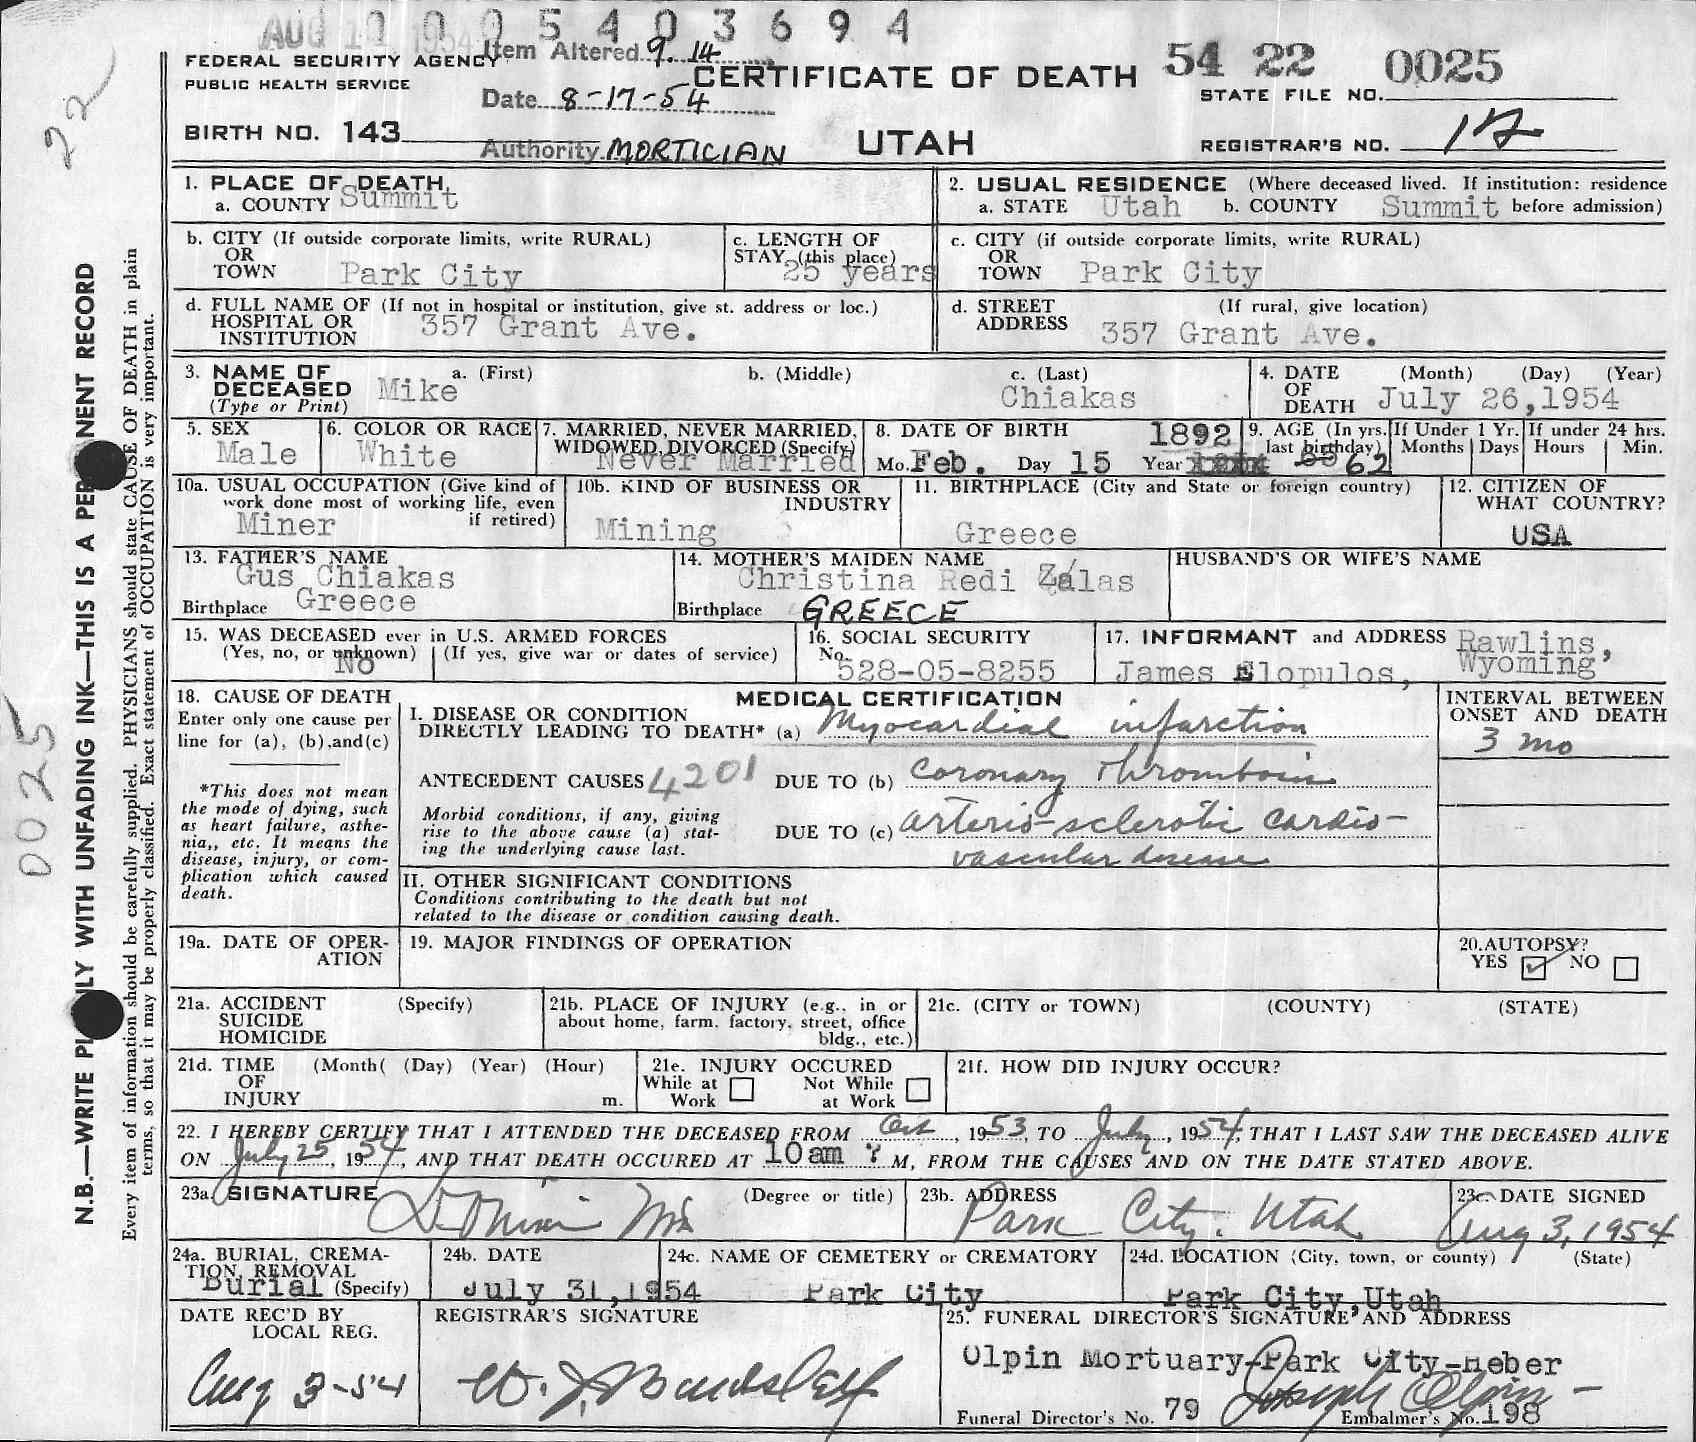 AUG 10 1954
0 0 5 4 0 3 6 9 4
FEDERAL SECURITY AGENCY
PUBLIC HEALTH SERVICE
Item Altered 9. 14
Date 8-17-54
Authority MORTICIAN
CERTIFICATE OF DEATH
UTAH
54 22 0025
STATE FILE NO.
BIRTH NO. 143
REGISTRAR'S NO. 12
22
0025
N.B.—WRITE PLAINLY WITH UNFADING INK—THIS IS A PERMANENT RECORD
Every item of information should be carefully supplied. PHYSICIANS should state CAUSE OF DEATH in plain
terms, so that it may be properly classified. Exact statement of OCCUPATION is very important.
1. PLACE OF DEATH,
a. COUNTY Summit
2. USUAL RESIDENCE (Where deceased lived. If institution: residence
a. STATE Utah b. COUNTY Summit before admission)
b. CITY (If outside corporate limits, write RURAL)
OR
TOWN Park City
c. LENGTH OF
STAY (this place)
25 years
c. CITY (if outside corporate limits, write RURAL)
OR
TOWN Park City
d. FULL NAME OF (If not in hospital or institution, give st. address or loc.)
HOSPITAL OR
INSTITUTION 357 Grant Ave.
d. STREET (If rural, give location)
ADDRESS 357 Grant Ave.
3. NAME OF a. (First) b. (Middle) c. (Last)
DECEASED Mike Chiakas
(Type or Print)
4. DATE (Month) (Day) (Year)
OF
DEATH July 26,1954
5. SEX
Male
6. COLOR OR RACE
White
7. MARRIED, NEVER MARRIED,
WIDOWED, DIVORCED (Specify)
Never Married
8. DATE OF BIRTH 1892
Mo. Feb. Day 15 Year
9. AGE (In yrs.
last birthday)
62
If Under 1 Yr.
Months Days
If under 24 hrs.
Hours Min.
10a. USUAL OCCUPATION (Give kind of
work done most of working life, even
if retired)
Miner
10b. KIND OF BUSINESS OR
INDUSTRY
Mining
11. BIRTHPLACE (City and State or foreign country)
Greece
12. CITIZEN OF
WHAT COUNTRY?
USA
13. FATHER'S NAME
Gus Chiakas
Birthplace Greece
14. MOTHER'S MAIDEN NAME
Christina Redi Zalas
Birthplace GREECE
HUSBAND'S OR WIFE'S NAME
15. WAS DECEASED ever in U.S. ARMED FORCES
(Yes, no, or unknown) (If yes, give war or dates of service)
No
16. SOCIAL SECURITY
No.
528-05-8255
17. INFORMANT and ADDRESS Rawlins,
James Elopulos, Wyoming
18. CAUSE OF DEATH
Enter only one cause per
line for (a), (b),and(c)
*This does not mean
the mode of dying, such
as heart failure, asthe-
nia,, etc. It means the
disease, injury, or com-
plication which caused
death.
MEDICAL CERTIFICATION
I. DISEASE OR CONDITION
DIRECTLY LEADING TO DEATH* (a) Myocardial infarction
ANTECEDENT CAUSES 4201 DUE TO (b) Coronary thrombosis
Morbid conditions, if any, giving
rise to the above cause (a) stat-
ing the underlying cause last.
DUE TO (c) arterio-sclerotic cardio-
vascular disease
INTERVAL BETWEEN
ONSET AND DEATH
3 mo
II. OTHER SIGNIFICANT CONDITIONS
Conditions contributing to the death but not
related to the disease or condition causing death.
19a. DATE OF OPER-
ATION
19. MAJOR FINDINGS OF OPERATION
20.AUTOPSY?
YES NO
21a. ACCIDENT (Specify)
SUICIDE
HOMICIDE
21b. PLACE OF INJURY (e.g., in or
about home, farm, factory, street, office
bldg., etc.)
21c. (CITY or TOWN) (COUNTY) (STATE)
21d. TIME (Month( (Day) (Year) (Hour)
OF
INJURY m.
21e. INJURY OCCURED
While at Not While
Work at Work
21f. HOW DID INJURY OCCUR?
22. I HEREBY CERTIFY THAT I ATTENDED THE DECEASED FROM Oct, 1953, TO July, 1954, THAT I LAST SAW THE DECEASED ALIVE
ON July 25, 1954, AND THAT DEATH OCCURED AT 10am ? M, FROM THE CAUSES AND ON THE DATE STATED ABOVE.
23a. SIGNATURE (Degree or title)
23b. ADDRESS
Park City, Utah
23c. DATE SIGNED
Aug 3, 1954
24a. BURIAL, CREMA-
TION, REMOVAL
Burial (Specify)
24b. DATE
July 31,1954
24c. NAME OF CEMETERY or CREMATORY
Park City
24d. LOCATION (City, town, or county) (State)
Park City,Utah
DATE REC'D BY
LOCAL REG.
Aug 3-54
REGISTRAR'S SIGNATURE
25. FUNERAL DIRECTOR'S SIGNATURE AND ADDRESS
Olpin Mortuary-Park City-Heber
Joseph Olpin
Funeral Director's No. 79 Embalmer's No. 198